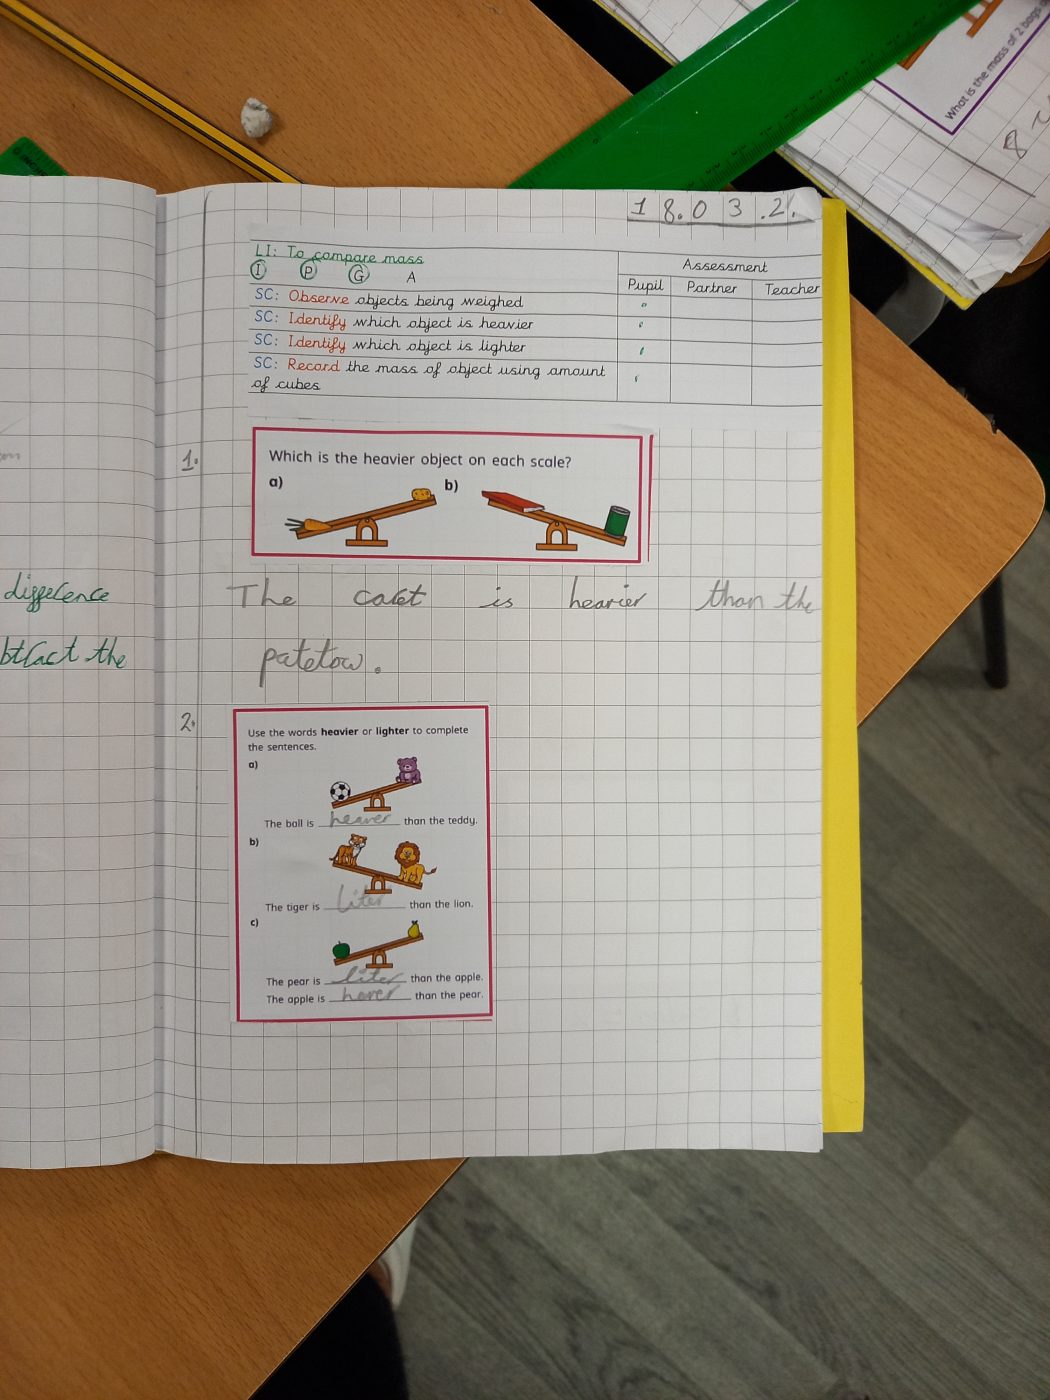 What is the mass of 2 bags
8
1 8.0 3 .2.
LI: To compare mass
I P G A
Assessment
Pupil Partner Teacher
SC: Observe objects being weighed
SC: Identify which object is heavier
SC: Identify which object is lighter
SC: Record the mass of object using amount
of cubes
1.
Which is the heavier object on each scale?
a) b)
The caret is hearier than the
patetow.
diggerence
btract the
2.
Use the words heavier or lighter to complete
the sentences.
a)
The ball is heaver than the teddy.
b)
The tiger is liter than the lion.
c)
The pear is liter than the apple.
The apple is haver than the pear.